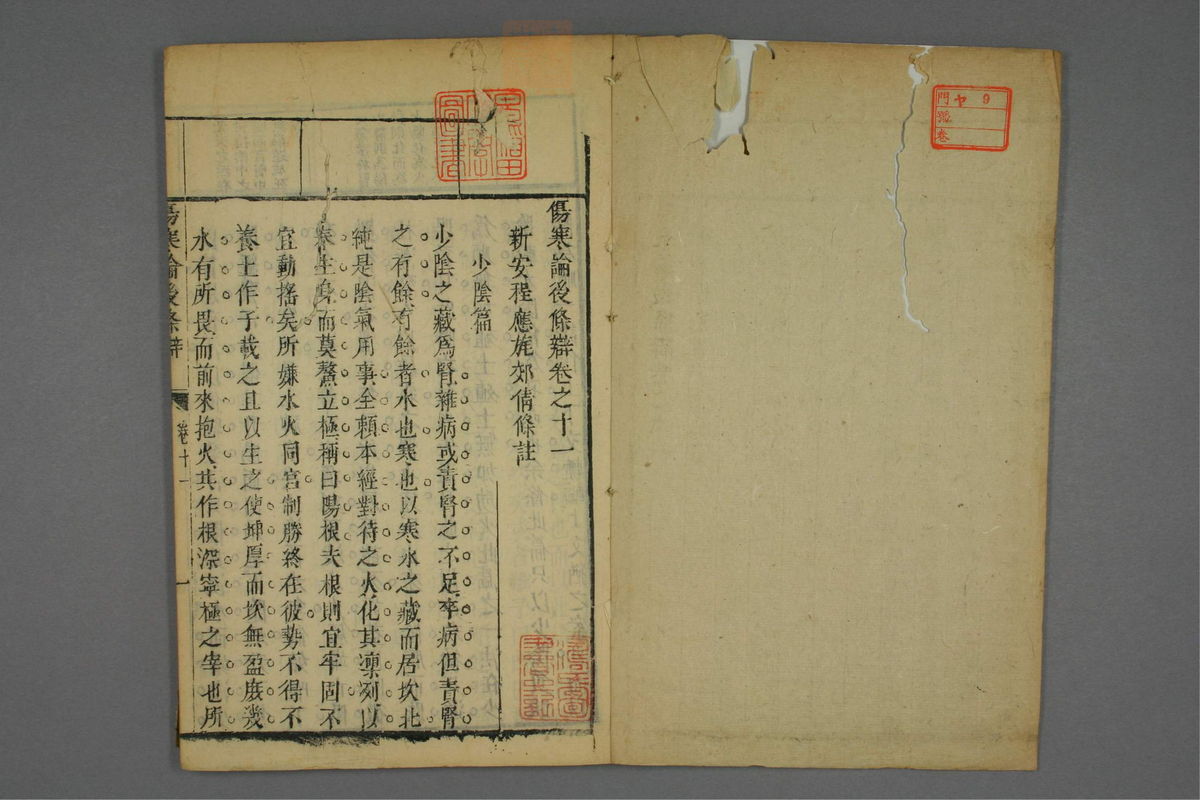 門 ヤ 9
號
卷
傷寒論後條辯卷之十一
新安程應旄郊倩條註
少陰篇
少陰之藏爲腎雜病或責腎之不足卒病但責腎
之有餘有餘者水也寒也以寒水之藏而居坎北
純是陰氣用事全賴本經對待之火化其凜冽以
奉生身而莫鰲立極稱曰陽根夫根則宜牢固不
宜動搖矣所嫌水火同宫制勝終在彼勢不得不
養土作子載之且以生之使坤厚而坎無盈庶幾
水有所畏而前來抱火其作根深寧極之宰也所
傷寒論後條辯 卷十一 一
圖書